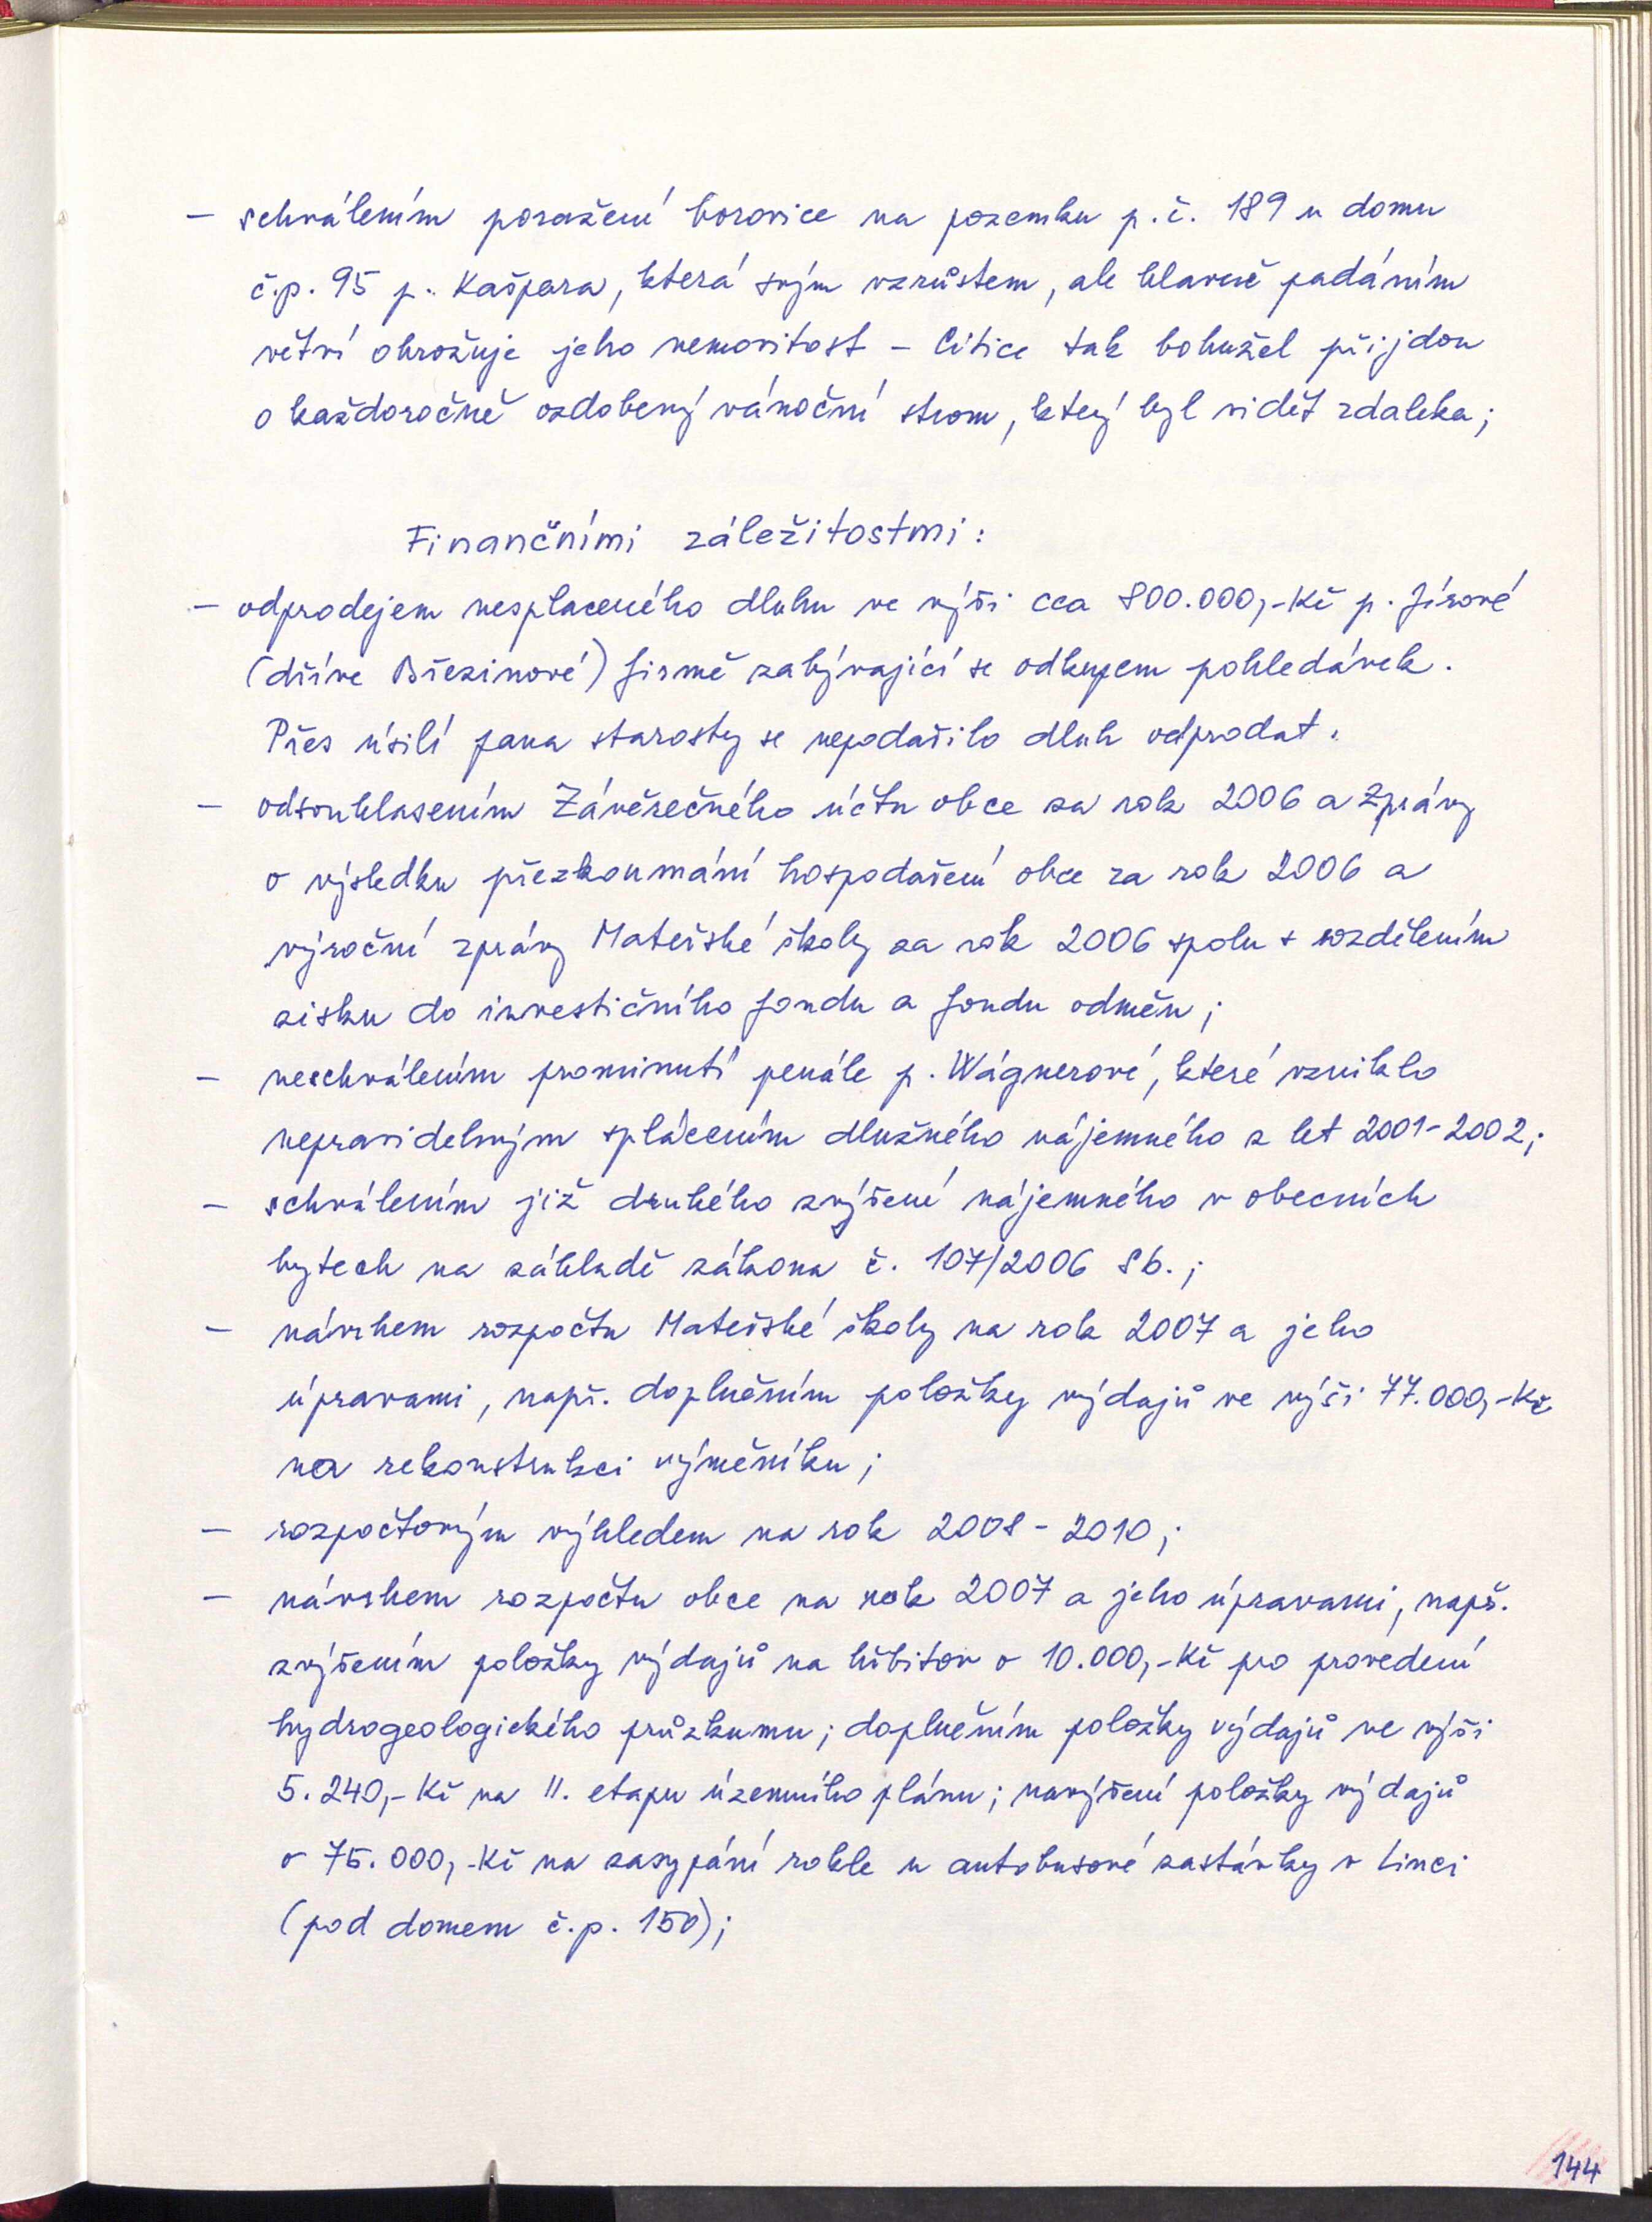 – schválením poražení borovice na pozemku p.č. 189 u domu
č.p. 95 p. Kašpara, která svým vzrůstem, ale hlavně padáním
větví ohrožuje jeho nemovitost – Citice tak bohužel přijdou
o každoročně ozdobený vánoční strom, který byl vidět zdaleka;
Finančními záležitostmi:
– odprodejem nesplaceného dluhu ve výši cca 800.000,-Kč p. Jírové
(dříve Březinové) firmě zabývající se odkupem pohledávek.
Přes úsilí pana starosty se nepodařilo dluh odprodat.
– odsouhlasením Závěrečného účtu obce za rok 2006 a Zprávy
o výsledku přezkoumání hospodaření obce za rok 2006 a
výroční zprávy Mateřské školy za rok 2006 spolu s rozdělením
zisku do investičního fondu a fondu odměn;
– neschválením prominutí penále p. Wágnerové, které vzniklo
nepravidelným splácením dlužného nájemného z let 2001-2002;
– schválením již druhého zvýšení nájemného v obecních
bytech na základě zákona č. 107/2006 Sb.;
– návrhem rozpočtu Mateřské školy na rok 2007 a jeho
úpravami, např. doplněním položky výdajů ve výši 77.000,-Kč
na rekonstrukci výměníku;
– rozpočtovým výhledem na rok 2008 - 2010;
– návrhem rozpočtu obce na rok 2007 a jeho úpravami, např.
zvýšením položky výdajů na hřbitov o 10.000,-Kč pro provedení
hydrogeologického průzkumu; doplněním položky výdajů ve výši
5.240,-Kč na II. etapu územního plánu; navýšení položky výdajů
o 75.000,-Kč na zasypání rokle u autobusové zastávky v Linci
(pod domem č.p. 150);
144